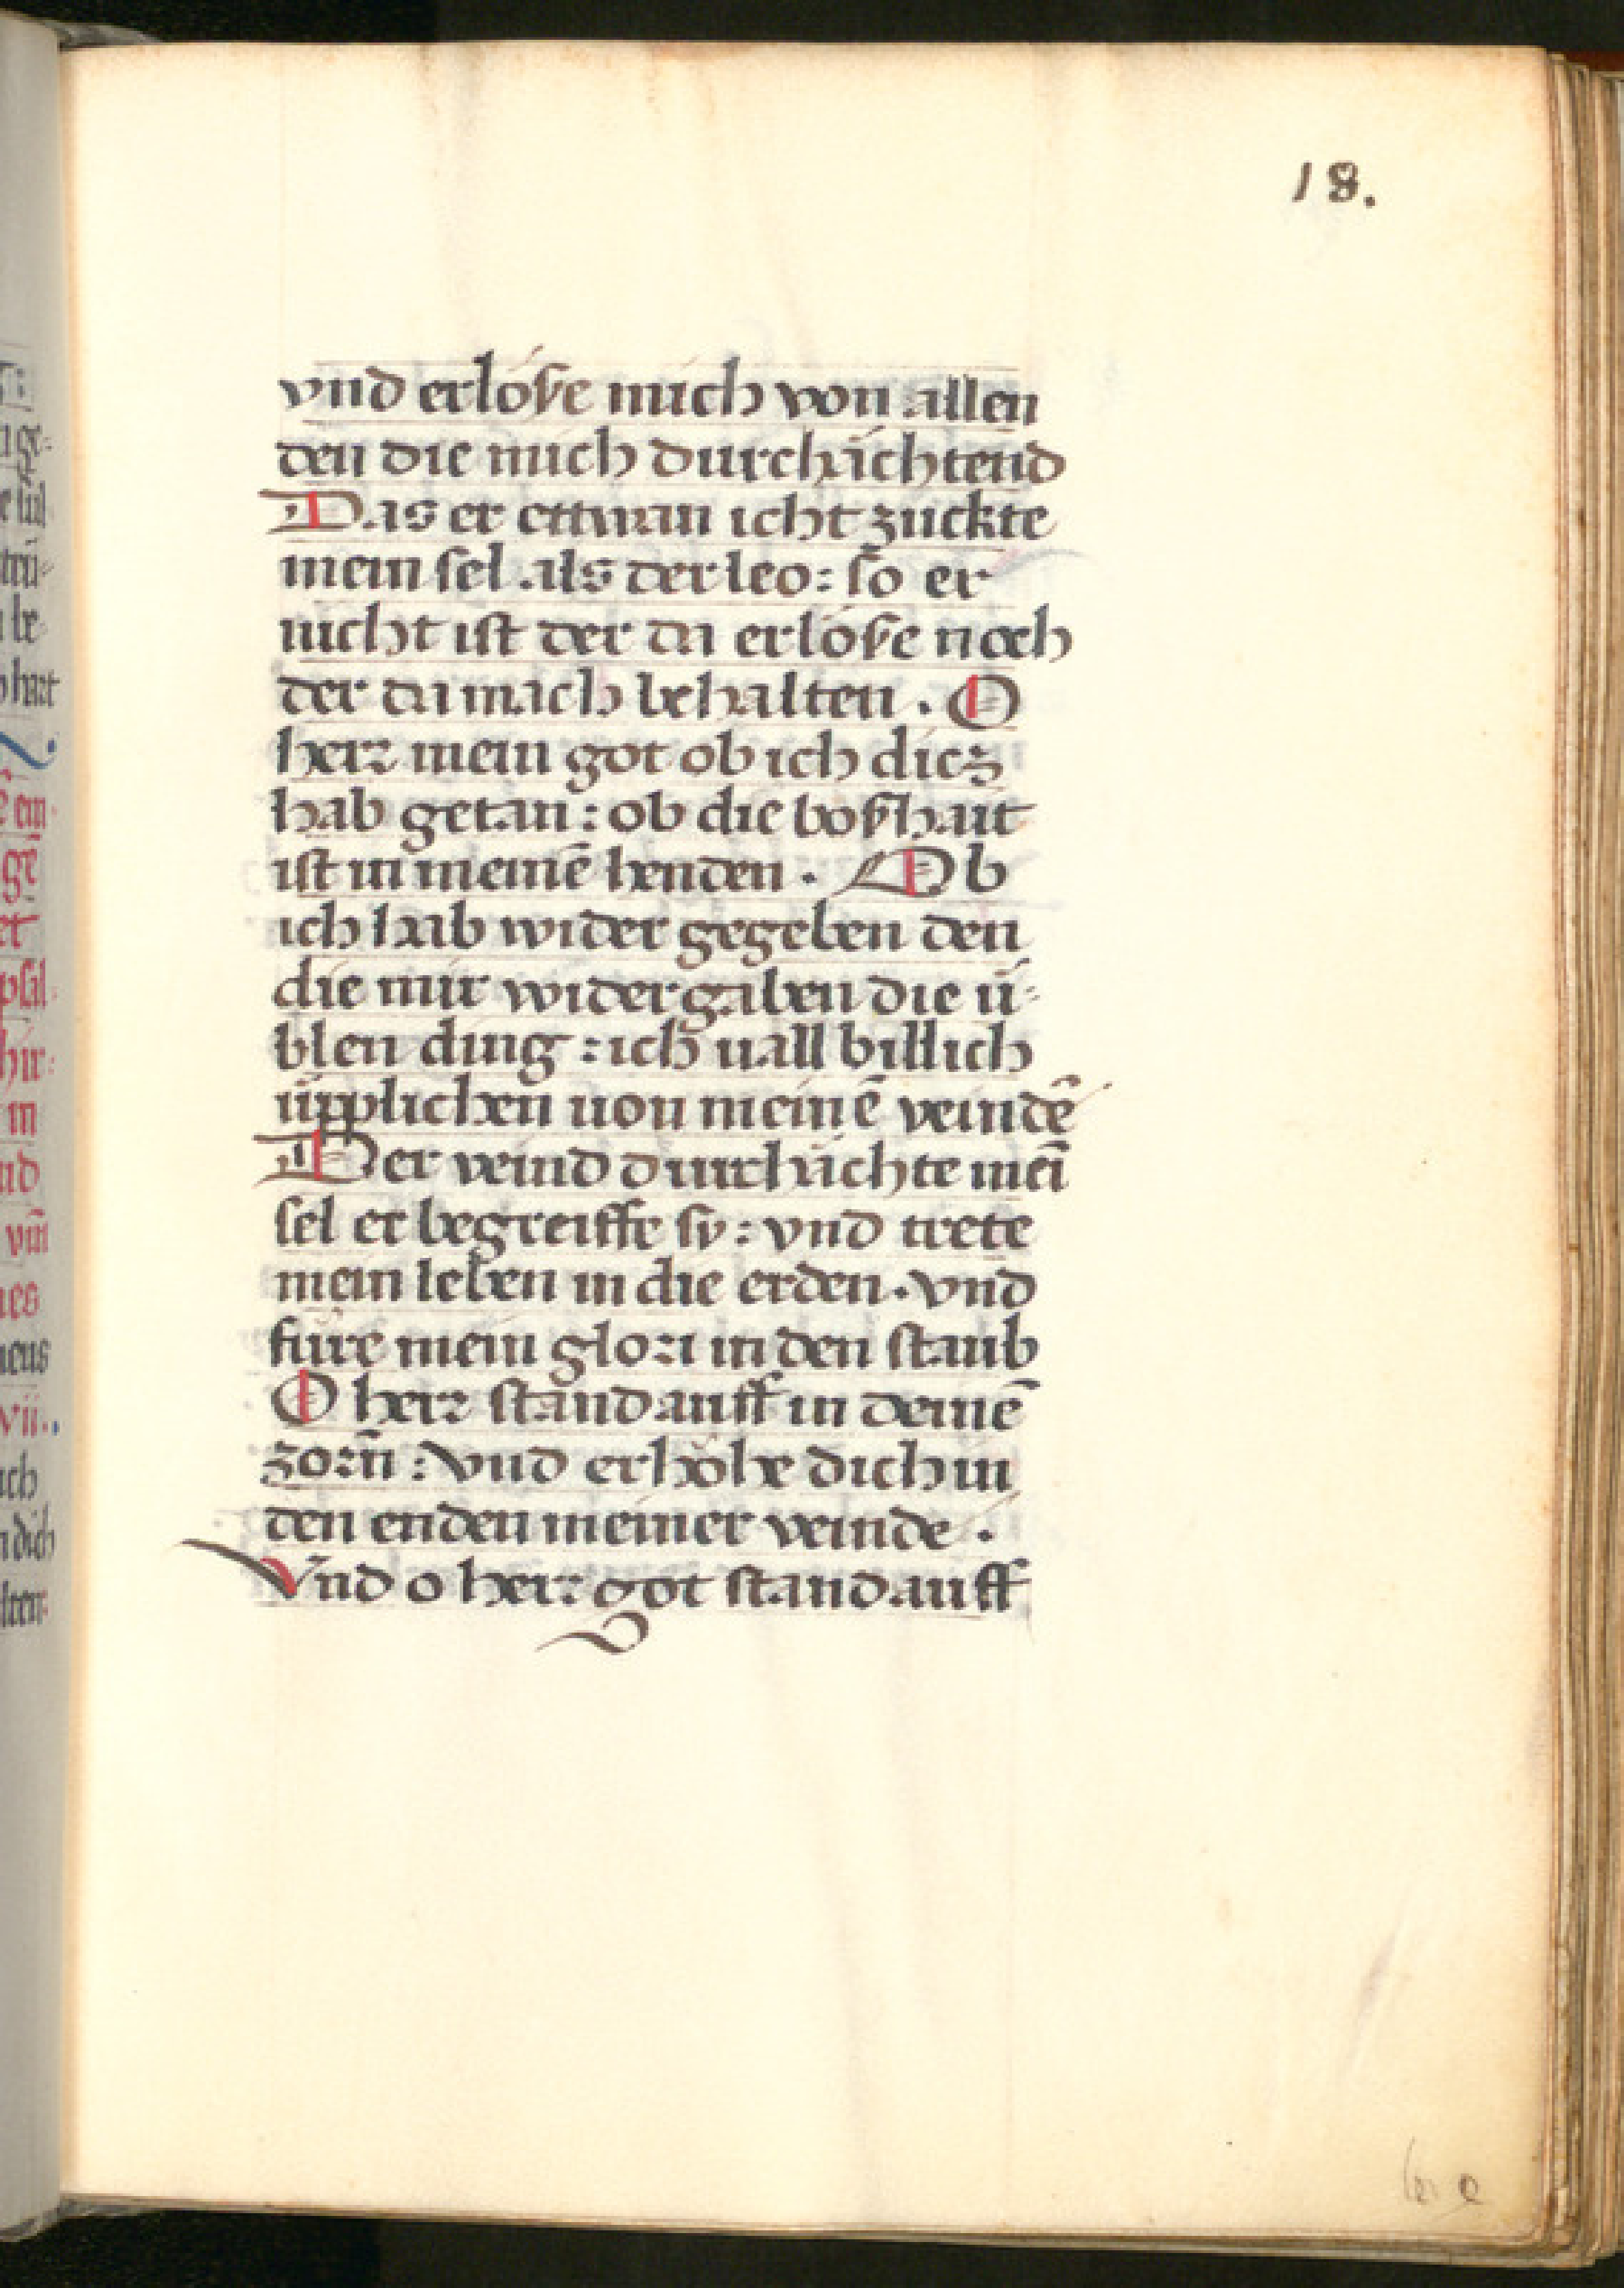 18.
vnd erlöse mich von allen
den die mich durchächtend
Das er ettwan icht zuckte
mein sel als der leo: so er
nicht ist der da erlöse noch
der da mach behalten. O
herr mein got ob ich dicz
hab getan: ob die boshait
ist in meinē henden. Ob
ich hab wider gegeben den
die mir widergaben die ü-
blen ding: ich vall billich
üpplichen von meinē veindē
Der veind durchächte mei̅
sel er begreiffe sy: vnd trete
mein leben in die erden. vnd
füre mein glori in den staub
O herr stand auff in deinē
zorn̄: vnd erhöhe dich in
den enden meiner veinde.
Vnd o herr got stand auff